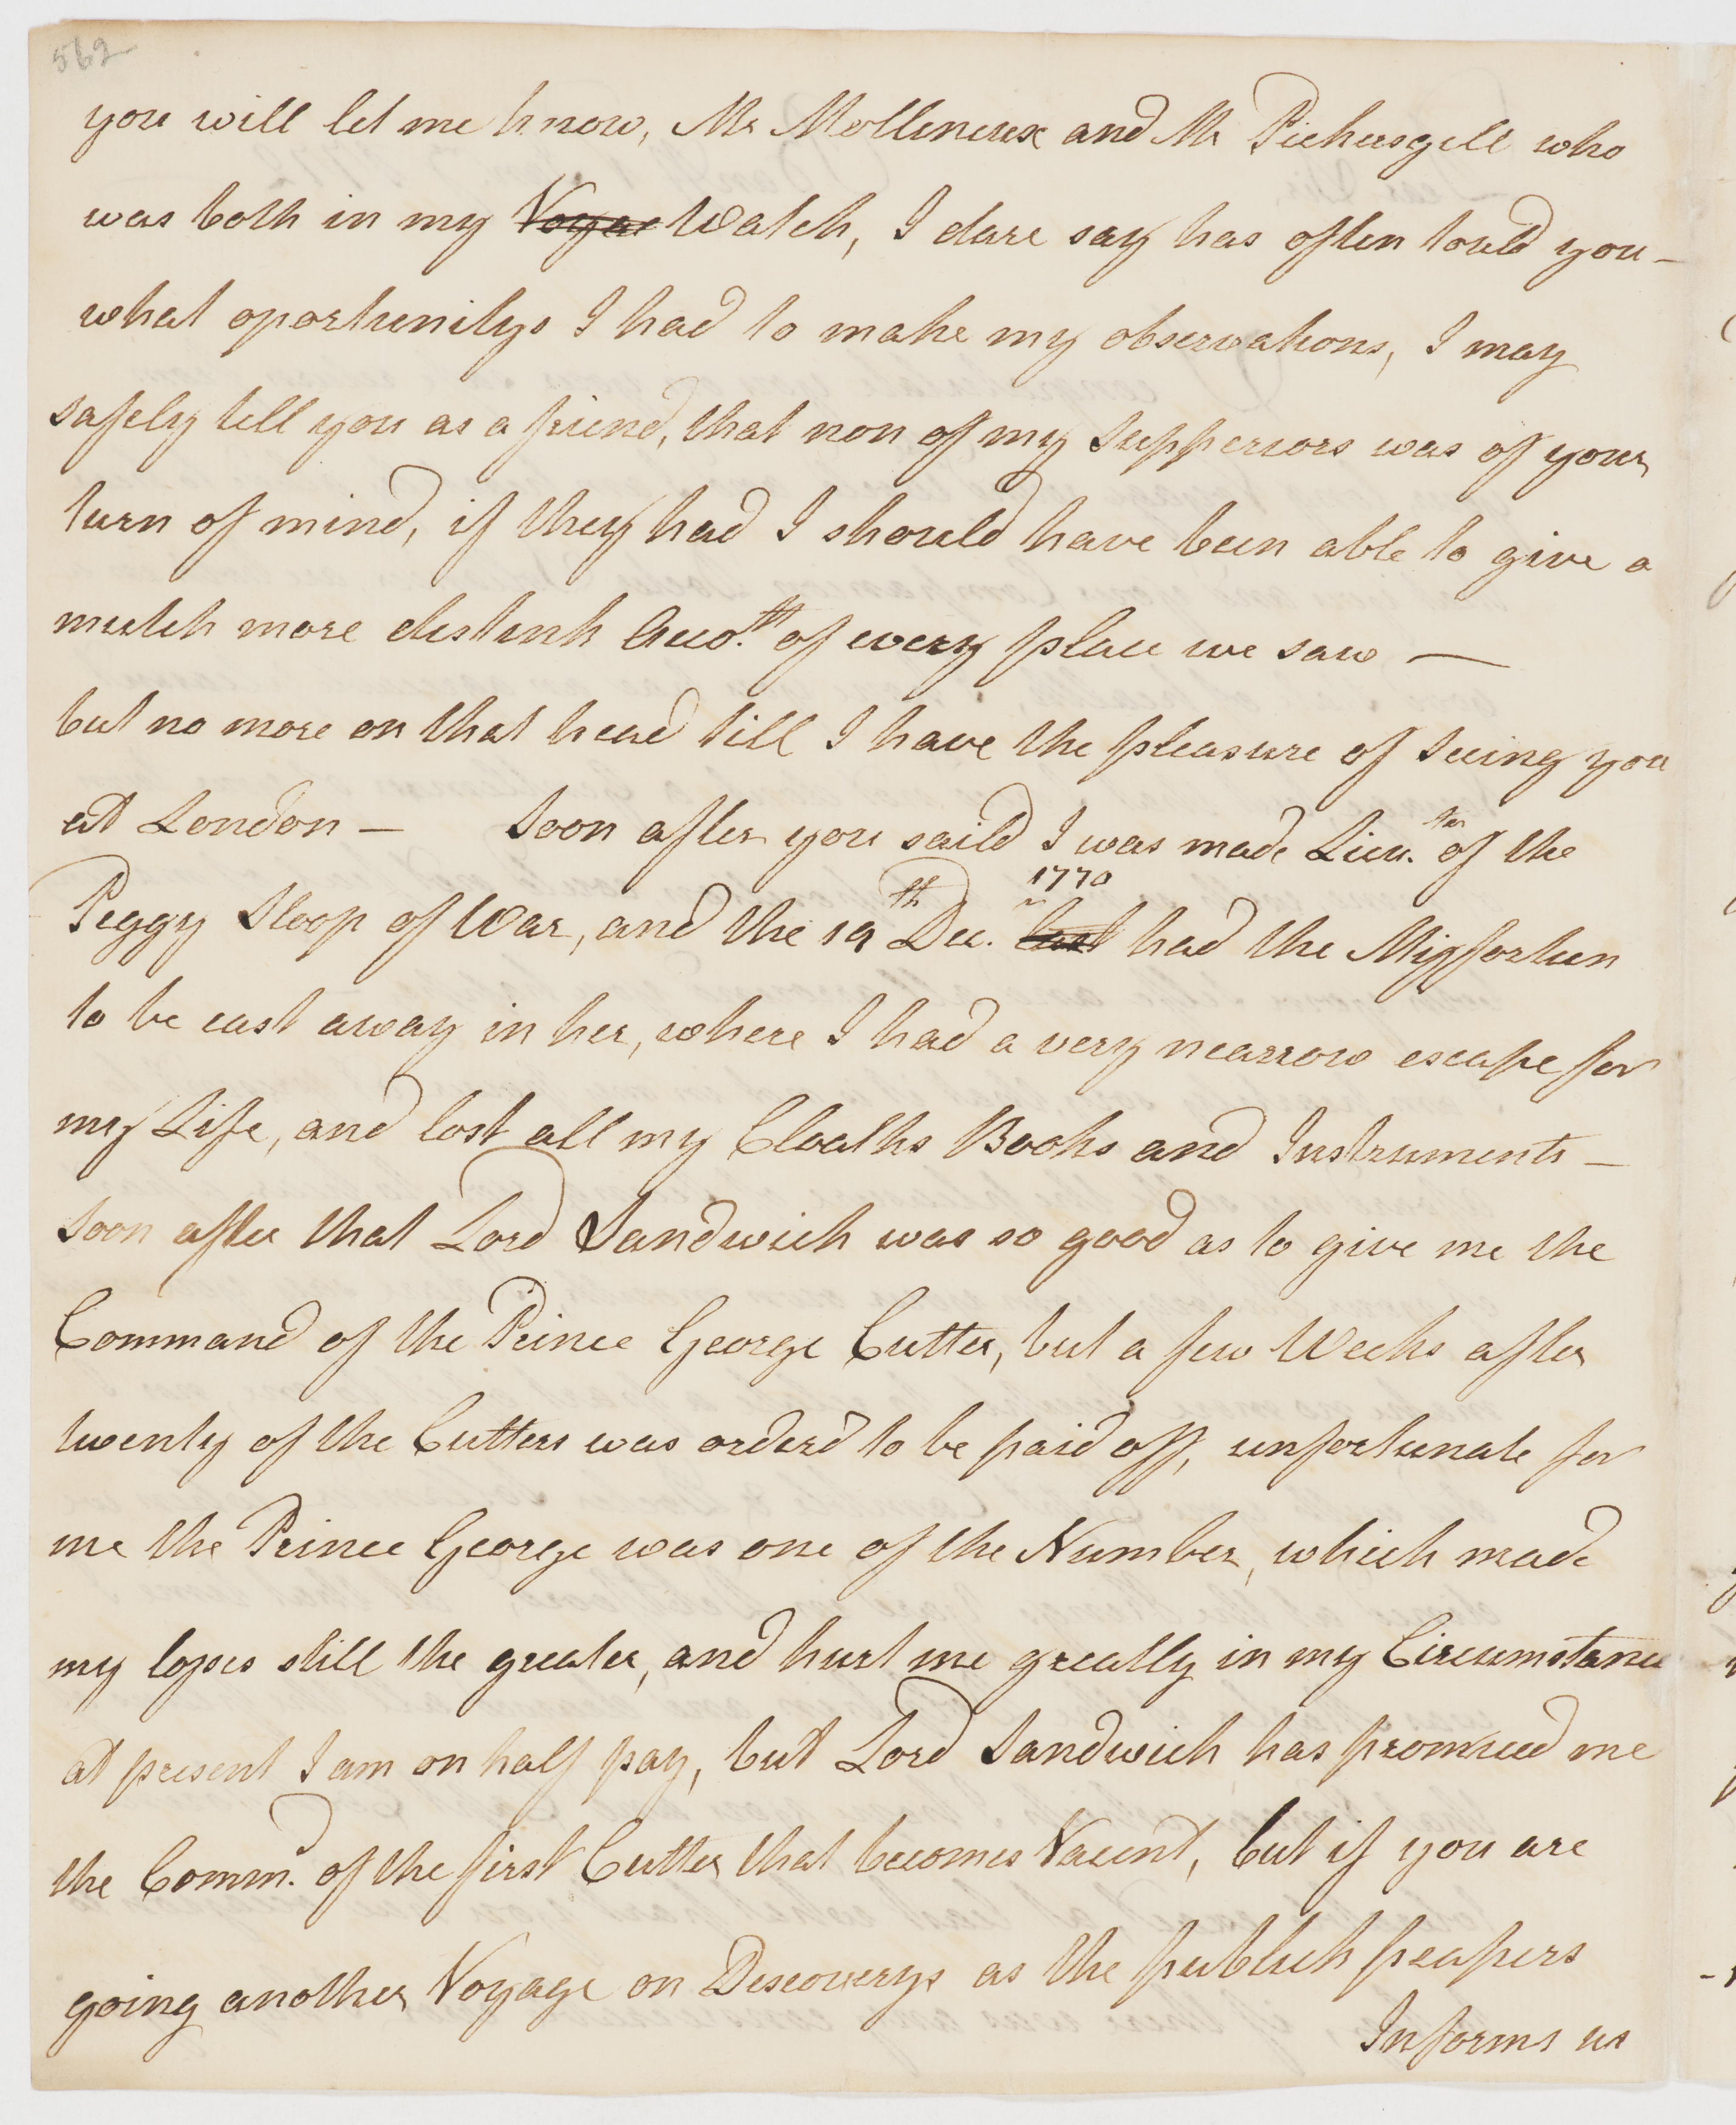 562
you will let me know, Mr Mollineux and Mr Pickersgill who
was both in my Voyae Watch, I dare say has often tould you -
what oportunitys I had to make my observations, I may
safely tell you as a friend, that non of my Supperiors was of your
turn of mind, if they had I should have been able to give a
mutch more distink Acco.tt of every place we saw —
but no more on that head till I have the pleasure of Seeing you
at London — Soon after you saild I was made Lieu.tn of the
Peggy Sloop of War, and the 19th Dec. last 1770 had the Misfortun
to be cast away in her, where I had a very nearrow escape for
my Life, and lost all my Cloaths Books and Instruments —
soon after that Lord Sandwich was so good as to give me the
Command of the Prince George Cutter, but a few Weeks after
twenty of the Cutters was orderd to be paid off, unfortunate for
me the Prince George was one of the Number, which made
my losses still the greater, and hurt me greatly in my Circumstance
at present I am on half pay, but Lord Sandwich has promised me
the Comm.d of the first Cutter that becomes Vacent, but if you are
going another Voyage on Discoverys as the publick peapers
Informs us